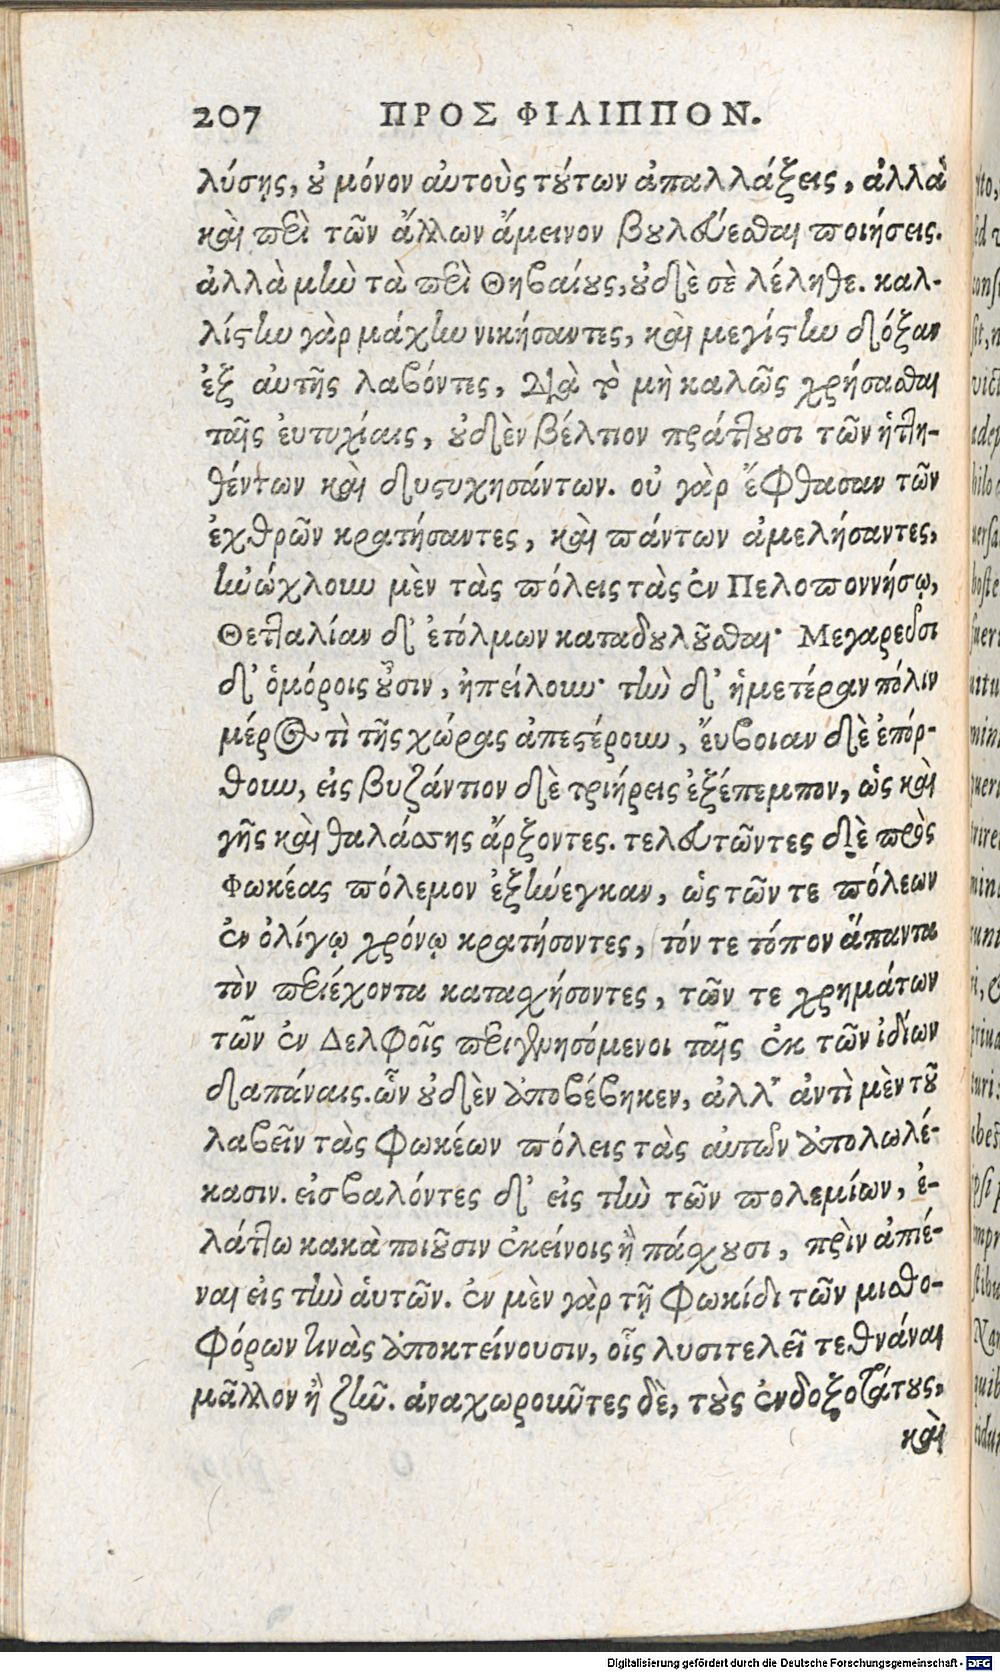 207 ΠΡΟΣ ΦΙΛΙΠΠΟΝ.
λύσῃς, οὐ μόνον αὐτοὺς τούτων ἀπαλλάξεις, ἀλλὰ
καὶ περὶ τῶν ἄλλων ἄμεινον βουλεύεσθαι ποιήσεις.
ἀλλὰ μὴν τὰ περὶ Θηβαίους, οὐδὲ σὲ λέληθε. καλ-
λίστην γὰρ μάχην νικήσαντες, καὶ μεγίστην δόξαν
ἐξ αὐτῆς λαβόντες, διὰ τὸ μὴ καλῶς χρήσασθαι
ταῖς ἐυτυχίαις, οὐδὲν βέλτιον πράττουσι τῶν ἡττη-
θέντων καὶ δυστυχησάντων. οὐ γὰρ ἔφθασαν τῶν
ἐχθρῶν κρατήσαντες, καὶ πάντων ἀμελήσαντες,
ἠνώχλουν μὲν τὰς πόλεις τὰς ἐν Πελοποννήσῳ,
Θετταλίαν δ' ἐτόλμων καταδουλοῦσθαι· Μεγαρεῦσι
δ' ὁμόροις οὖσιν, ἠπείλουν· τὴν δ' ἡμετέραν πόλιν
μέρος τὶ τῆς χώρας ἀπεστέρουν, ἔυβοιαν δὲ ἐπόρ-
θουν, εἰς βυζάντιον δὲ τριήρεις ἐξέπεμπον, ὡς καὶ
γῆς καὶ θαλάσσης ἄρξοντες. τελευτῶντες δὲ πρὸς
Φωκέας πόλεμον ἐξήνεγκαν, ὡς τῶν τε πόλεων
ἐν ὀλίγῳ χρόνῳ κρατήσοντες, τόν τε τόπον ἅπαντα
τὸν περιέχοντα κατασχήσοντες, τῶν τε χρημάτων
τῶν ἐν Δελφοῖς περιγενησόμενοι ταῖς ἐκ τῶν ἰδίων
δαπάναις. ὧν οὐδὲν ἀποβέβηκεν, ἀλλ' ἀντὶ μὲν τοῦ
λαβεῖν τὰς Φωκέων πόλεις τὰς αὐτῶν ἀπολωλέ-
κασιν. εἰσβαλόντες δ' εἰς τὴν τῶν πολεμίων, ἐ-
λάττω κακὰ ποιοῦσιν ἐκείνοις ἢ πάσχουσι, πρὶν ἀπιέ-
ναι εἰς τὴν ἁυτῶν. ἐν μὲν γὰρ τῇ Φωκίδι τῶν μισθο-
φόρων τινὰς ἀποκτείνουσιν, οἷς λυσιτελεῖ τεθνάναι
μᾶλλον ἢ ζῆν. ἀναχωροῦντες δὲ, τοὺς ἐνδοξοτάτους,
καὶ
Digitalisierung gefördert durch die Deutsche Forschungsgemeinschaft - DFG